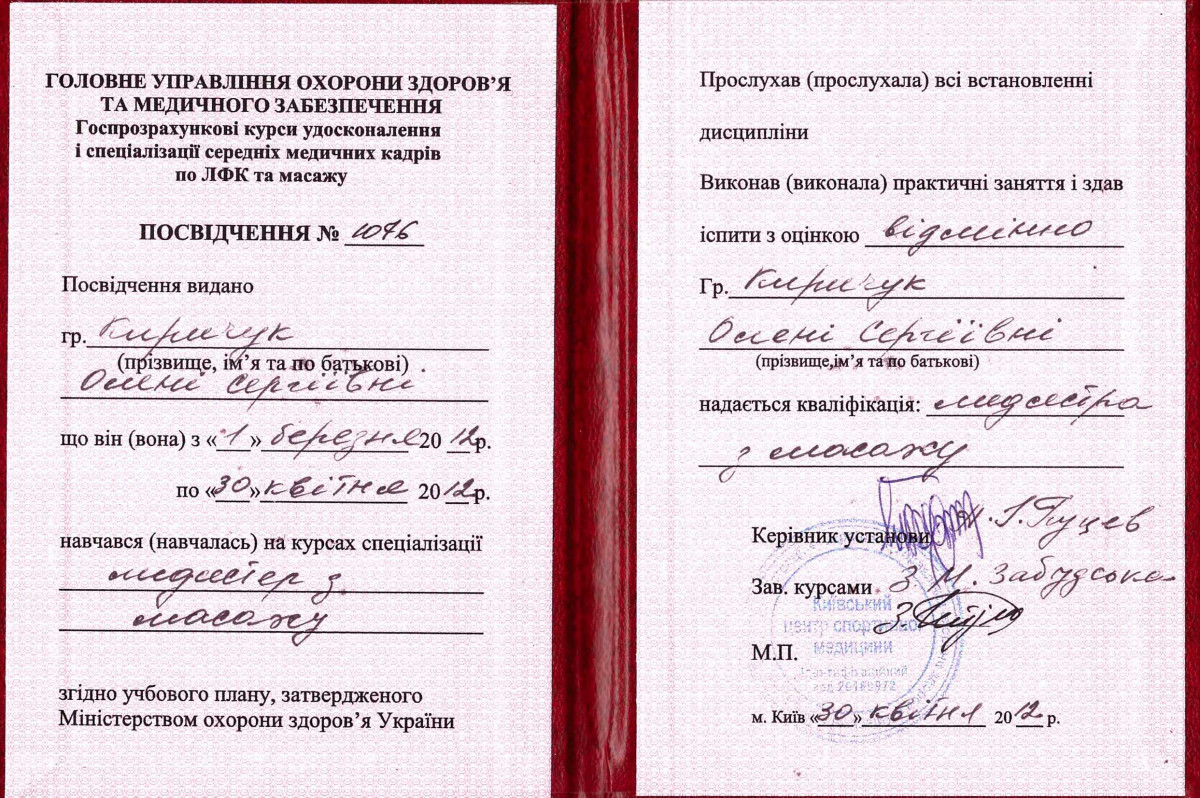 ГОЛОВНЕ УПРАВЛІННЯ ОХОРОНИ ЗДОРОВ’Я
ТА МЕДИЧНОГО ЗАБЕЗПЕЧЕННЯ
Госпрозрахункові курси удосконалення
і спеціалізації середніх медичних кадрів
по ЛФК та масажу
ПОСВІДЧЕННЯ № 1076
Посвідчення видано
гр. Киричук
(прізвище, ім’я та по батькові)
Олені Сергіївні
що він (вона) з «1» березня 2012р.
по «30» квітня 2012р.
навчався (навчалась) на курсах спеціалізації
медсестер з
масажу
згідно учбового плану, затвердженого
Міністерством охорони здоров’я України
Прослухав (прослухала) всі встановленні
дисципліни
Виконав (виконала) практичні заняття і здав
іспити з оцінкою відмінно
Гр. Киричук
Олені Сергіївні
(прізвище,ім’я та по батькові)
надається кваліфікація: медсестра
з масажу
Керівник установи
Зав. курсами З. М. Забудська
Київський
центр спортивної
медицини
М.П.
м. Київ «30» квітня 2012 р.